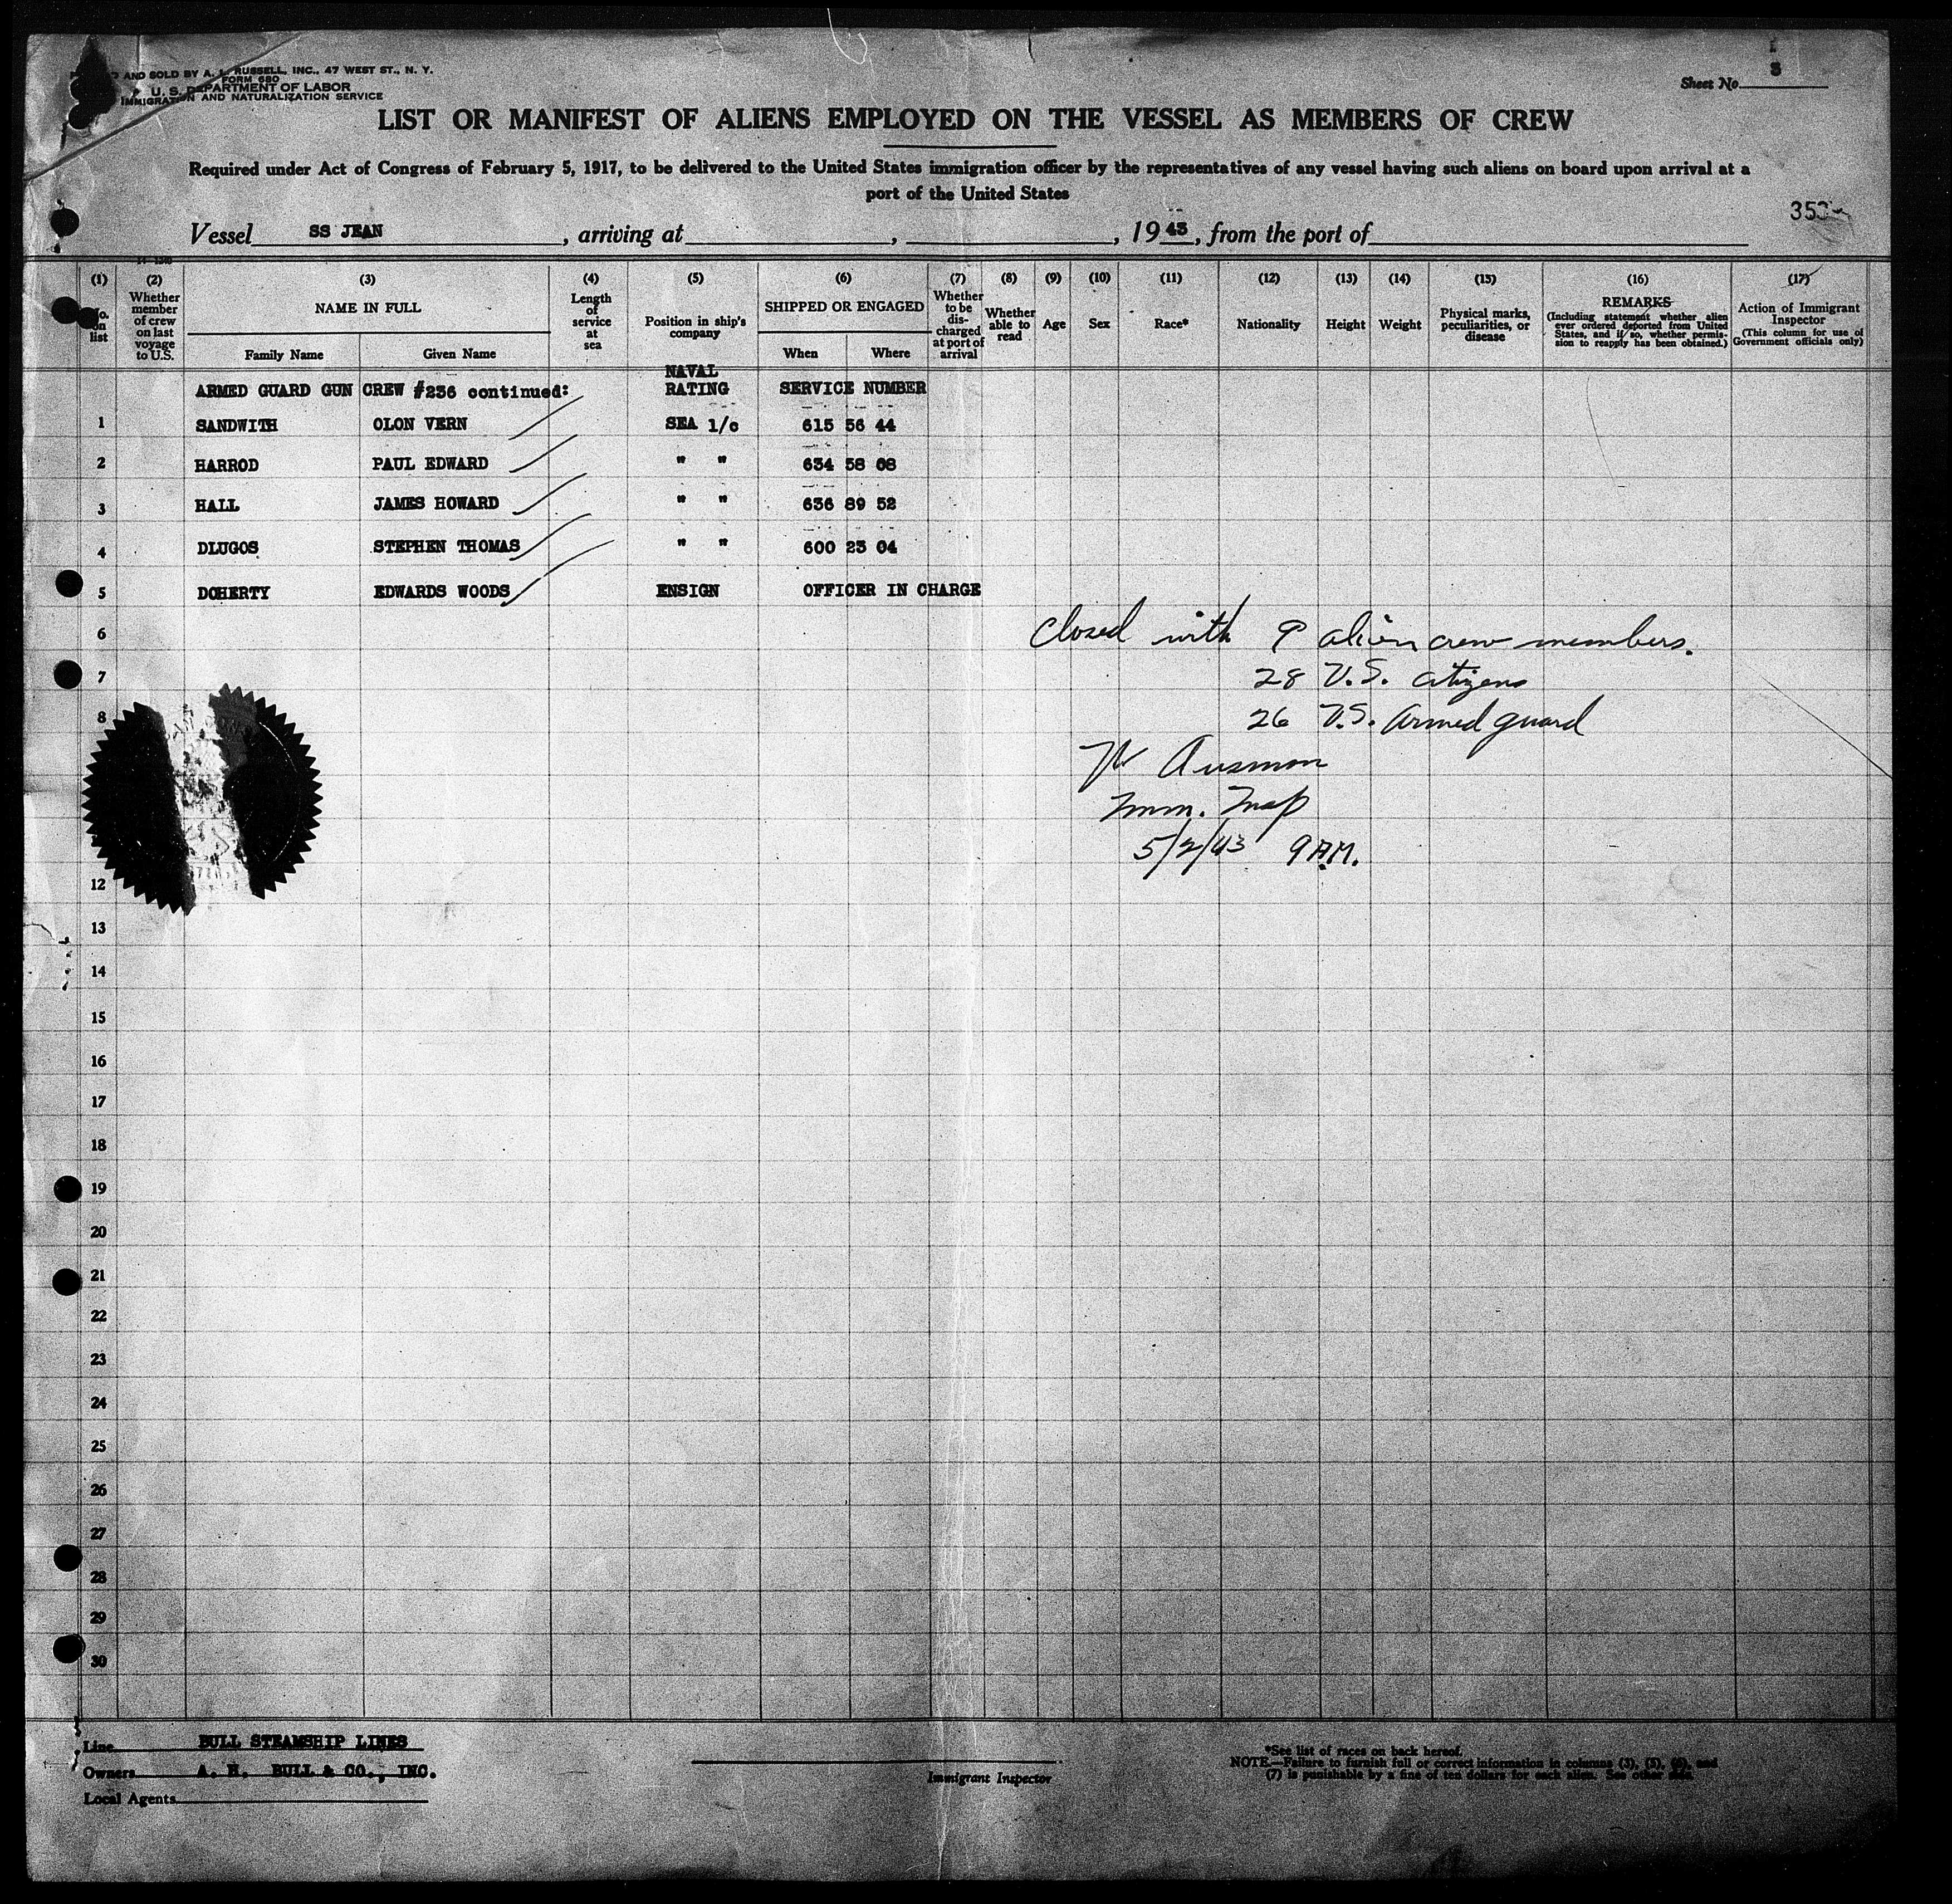 AND SOLD BY A. L. RUSSELL, INC., 47 WEST ST., N. Y.
FORM 680
U. S. DEPARTMENT OF LABOR
IMMIGRATION AND NATURALIZATION SERVICE
Sheet No.
LIST OR MANIFEST OF ALIENS EMPLOYED ON THE VESSEL AS MEMBERS OF CREW
Required under Act of Congress of February 5, 1917, to be delivered to the United States immigration officer by the representatives of any vessel having such aliens on board upon arrival at a
port of the United States
Vessel SS JEAN, arriving at , , 19 43, from the port of
(1) (2) (3) (4) (5) (6) (7) (8) (9) (10) (11) (12) (13) (14) (15) (16) (17)
No. on list
Whether member of crew on last voyage to U.S.
NAME IN FULL
Family Name Given Name
Length of service at sea
Position in ship's company
SHIPPED OR ENGAGED
When Where
Whether to be discharged at port of arrival
Whether able to read
Age
Sex
Race*
Nationality
Height
Weight
Physical marks, peculiarities, or disease
REMARKS
(Including statement whether alien ever ordered deported from United States, and if so, whether permission to reapply has been obtained.)
Action of Immigrant Inspector
(This column for use of Government officials only)
ARMED GUARD GUN CREW #236 continued: NAVAL RATING SERVICE NUMBER
1 SANDWITH OLON VERN SEA 1/c 615 56 44
2 HARROD PAUL EDWARD " " 634 58 08
3 HALL JAMES HOWARD " " 636 89 52
4 DLUGOS STEPHEN THOMAS " " 600 23 04
5 DOHERTY EDWARDS WOODS ENSIGN OFFICER IN CHARGE
6 Closed with 9 alien crew members.
7 28 U.S. citizens
8 26 U.S. Armed guard
W Ausmon
Imm. Insp
5/2/43 9 A.M.
12
13
14
15
16
17
18
19
20
21
22
23
24
25
26
27
28
29
30
Line BULL STEAMSHIP LINES
Owners A. H. BULL & CO., INC.
Local Agents
Immigrant Inspector
*See list of races on back hereof.
NOTE.—Failure to furnish full or correct information in columns (3), (5), (6), and
(7) is punishable by a fine of ten dollars for each alien. See other side.